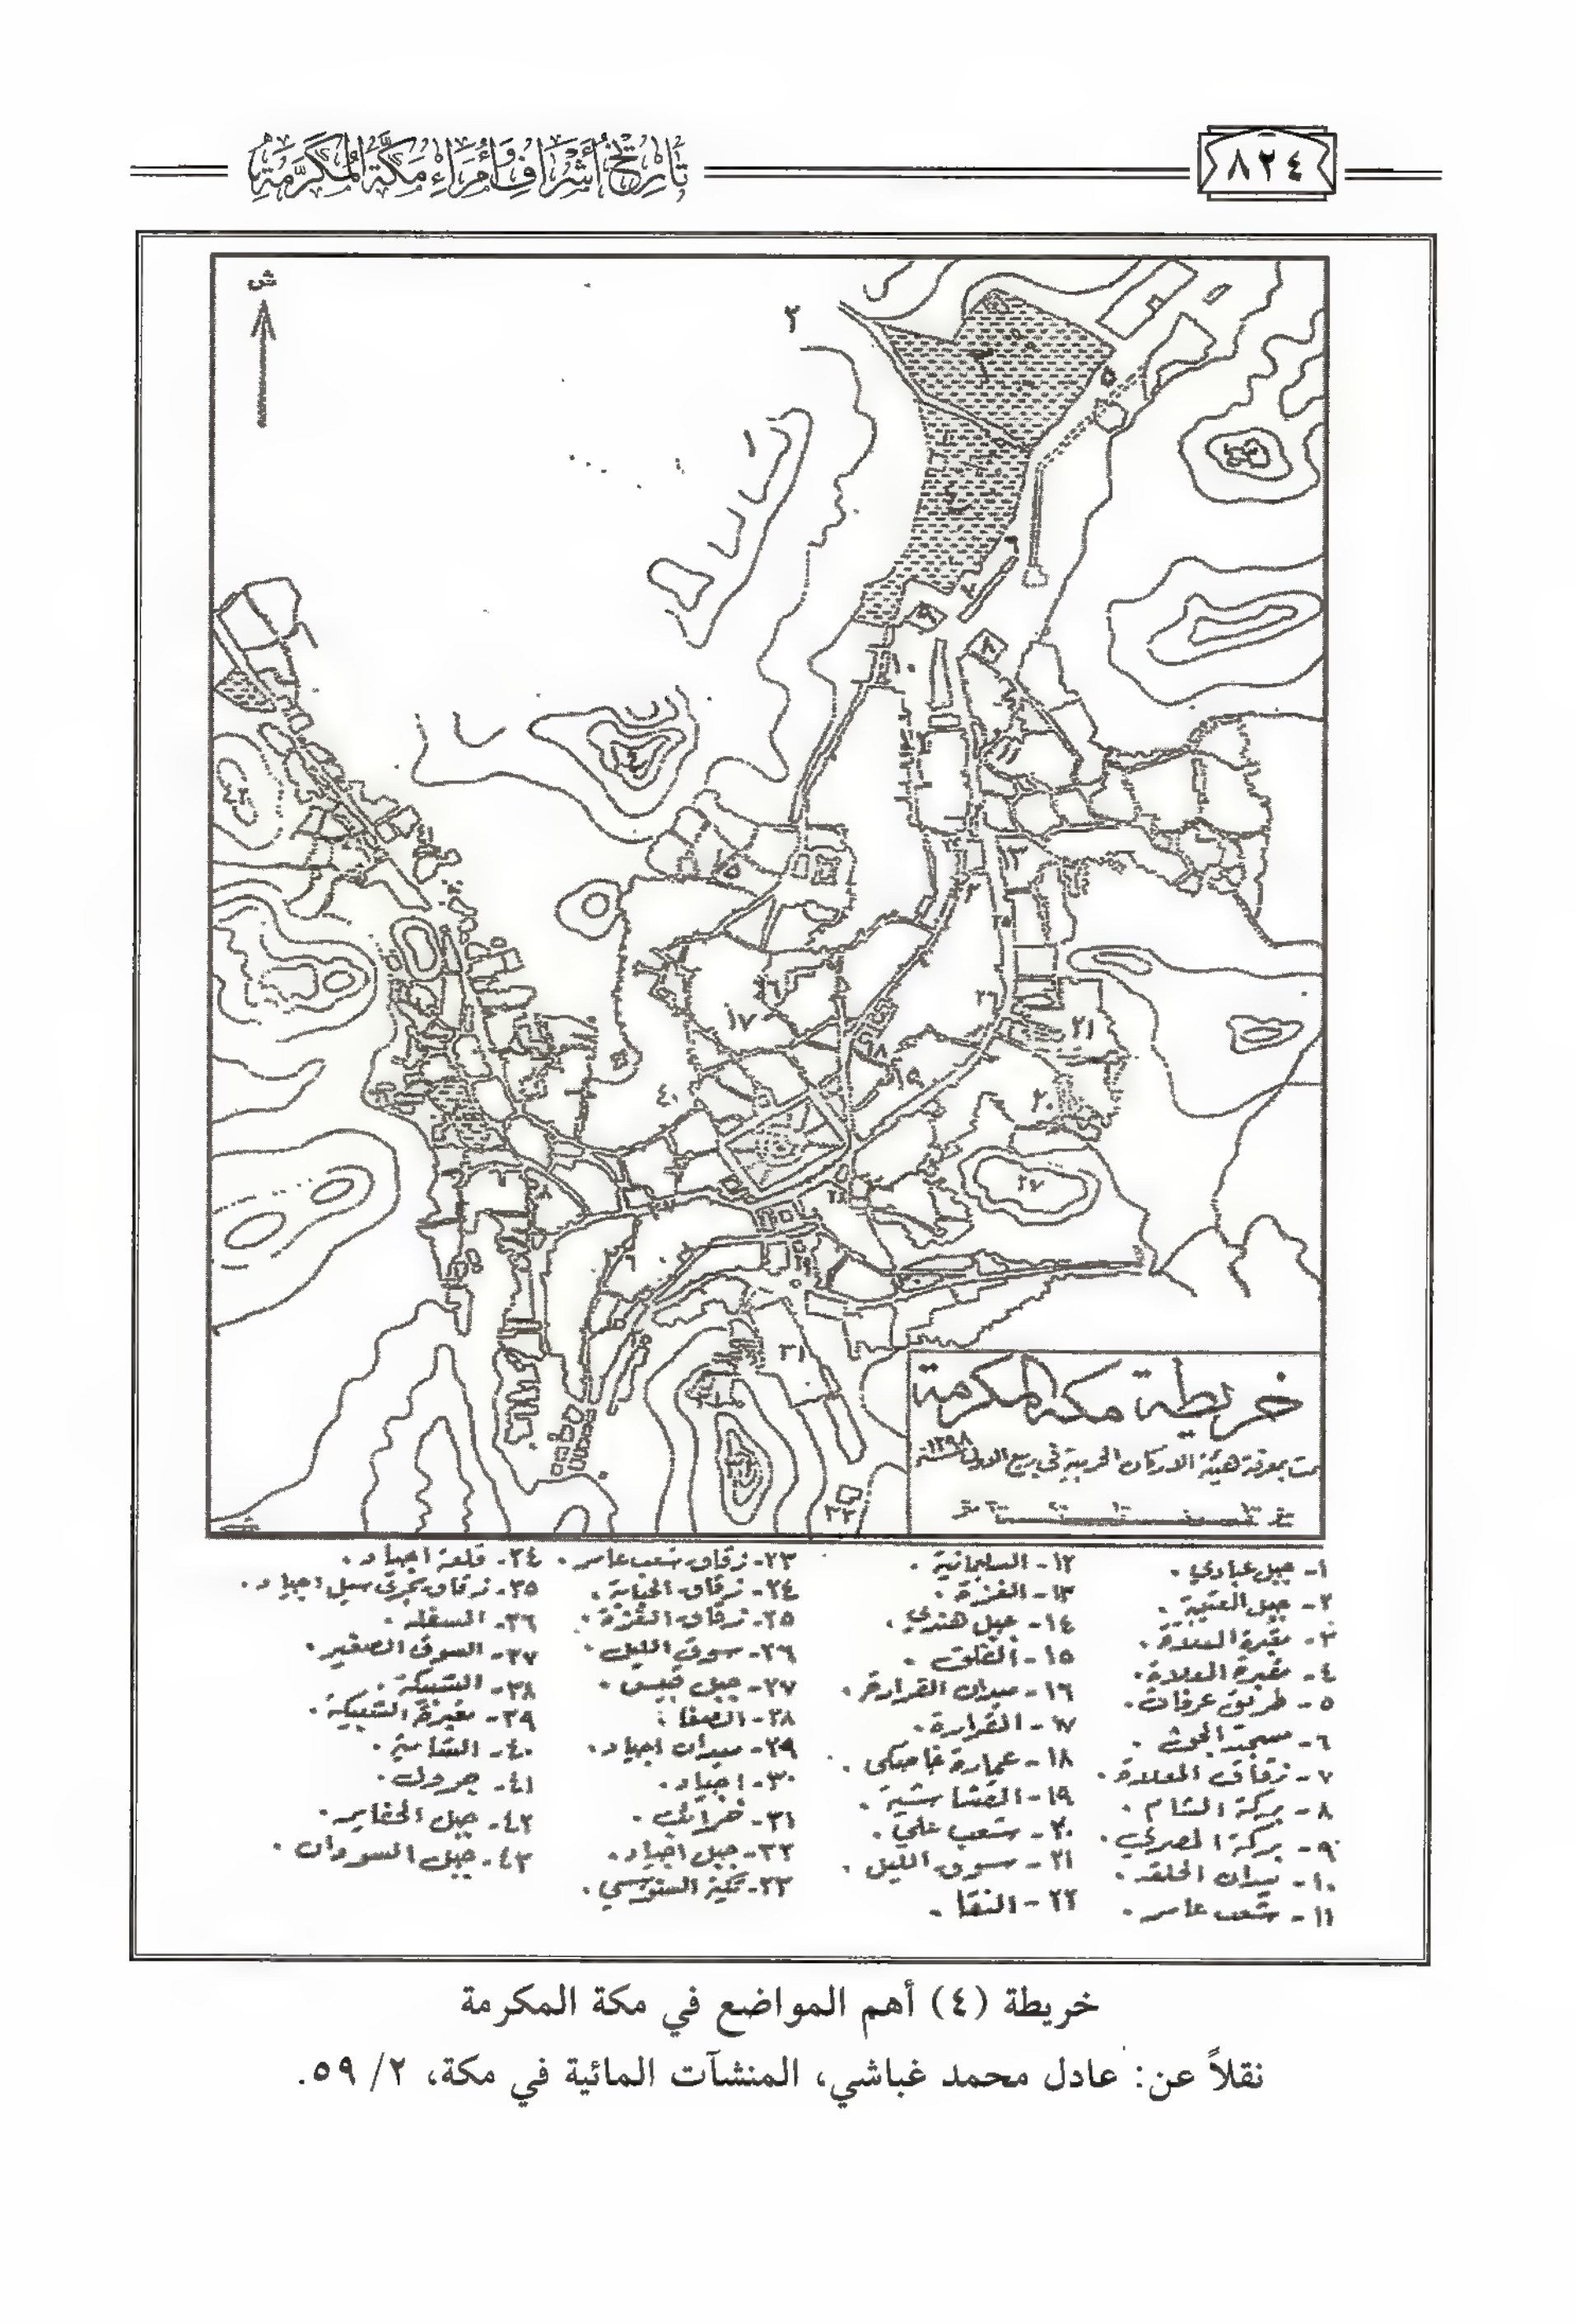 ٨٢٤
تاريخ أشراف وأمراء مكة المكرمة
ش
خريطة مكة المكرمة
تمت بمعرفة هيئة الاركان الحربية في ربيع الاول سنة ١٢٩٨
١- جبل عبادي.
٢- جبل العتيبية.
٣- مقبرة المعلاة.
٤- مقبرة المعلاة.
٥- طريق عرفات.
٦- مسجد الجن.
٧- زقاق المعلاة.
٨- بركة الشام.
٩- بركة المصري.
١٠- ميدان الحلقه.
١١- شعب عامر.
١٢- السليمانية.
١٣- الغزة.
١٤- جبل هندي.
١٥- الفلق.
١٦- ميدان القرارة.
١٧- القرارة.
١٨- عمارة خاصكي.
١٩- القشاشية.
٢٠- شعب علي.
٢١- سوق الليل.
٢٢- النقا.
٢٣- زقاق شعب عامر.
٢٤- زقاق
٢٥- زقاق الغزة.
٢٦- سوق الليل.
٢٧- جبل قبيس.
٢٨- الصفا.
٢٩- ميدان اجياد.
٣٠- اجياد.
٣١- خرائب.
٣٢- جبل اجياد.
٣٣- تكية السنوسي.
٣٤- قلعة اجياد.
٣٥- زقاق مجرى سيل اجياد.
٣٦- السفله.
٣٧- السوق الصغير.
٣٨- الشبيكة.
٣٩- مقبرة الشبيكة.
٤٠- الشامية.
٤١- جرول.
٤٢- جبل الحفاير.
٤٣- جبل السودان.
خريطة (٤) أهم المواضع في مكة المكرمة
نقلاً عن: عادل محمد غباشي، المنشآت المائية في مكة، ٢/ ٥٩.